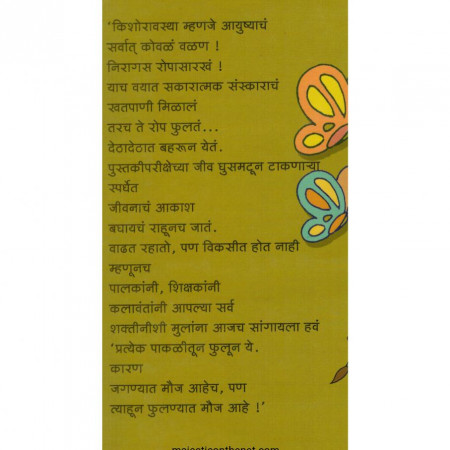 ‘किशोरावस्था म्हणजे आयुष्याचं
सर्वात् कोवळं वळण !
निरागस रोपासारखं !
याच वयात सकारात्मक संस्काराचं
खतपाणी मिळालं
तरच ते रोप फुलतं...
देठादेठात बहरून येतं.
पुस्तकीपरीक्षेच्या जीव घुसमटून टाकणाऱ्या
स्पर्धेत
जीवनाचं आकाश
बघायचं राहूनच जातं.
वाढत रहातो, पण विकसीत होत नाही
म्हणूनच
पालकांनी, शिक्षकांनी
कलावंतांनी आपल्या सर्व
शक्तीनीशी मुलांना आजच सांगायला हवं
‘प्रत्येक पाकळीतून फुलून ये.
कारण
जगण्यात मौज आहेच, पण
त्याहून फुलण्यात मौज आहे !’
majesticonthenet.com